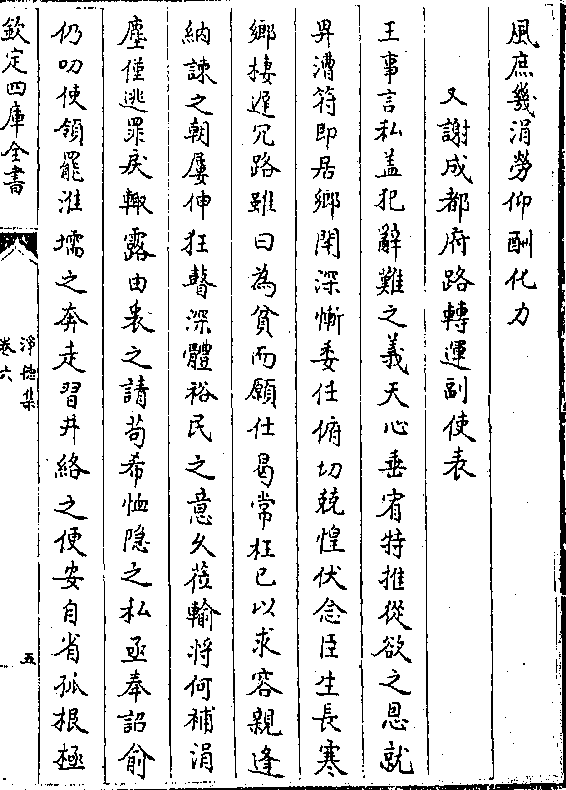 風庶幾涓勞仰酬化力
又謝成都府路轉運副使表
王事言私盖犯辭難之義天心垂宥特推從欲之恩就
畀漕符即居鄉閈深慚委任俯切兢惶伏念臣生長寒
鄉棲遲冗路雖曰為貧而願仕曷常枉已以求容親逢
納諫之朝屢伸狂瞽深體裕民之意久蒞輸將何補涓
塵僅逃罪戾輙露由衷之請苟希恤隐之私亟奉詔俞
仍叨使領罷淮壖之奔走習井絡之便安自省孤根極
欽定四庫全書
淨德集
卷六
五